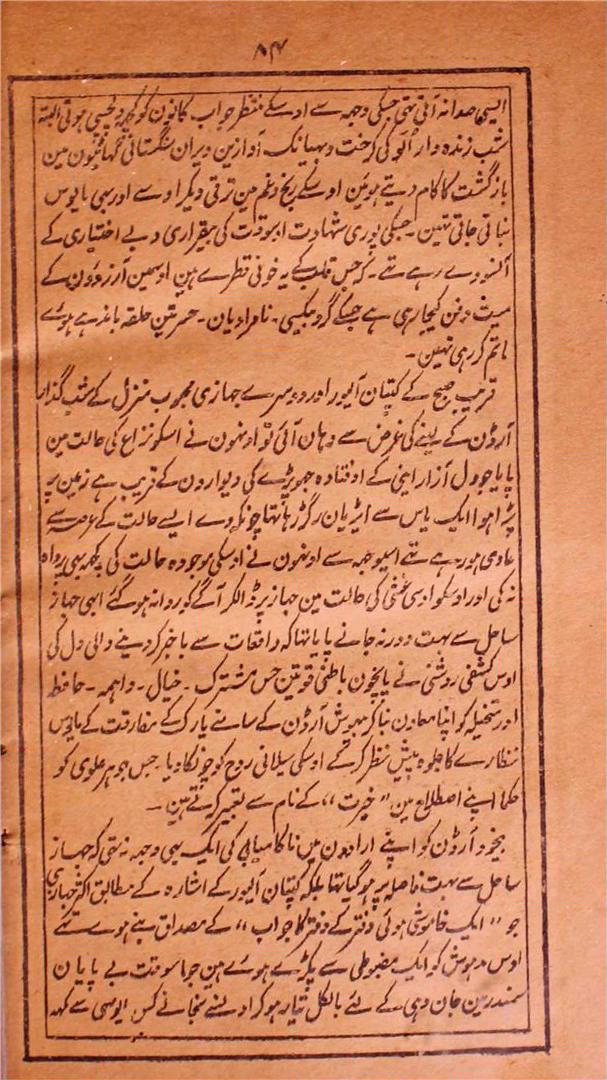 ۸۴
ایسی صدا نہ آتی تھی جسکی وجہ سے اوسکے منتظر جواب کانون کو کچھ دلچسپی ہوتی البتہ
شب زندہ دار اُلو کی کرخت و بہیانک آوازین ویران سنگستانی گہاٹیون مین
بازگشت کا کام دیتے ہوئین اوسکے رنج و غم مین ترقی دیکر اوسے اور بہی مایوس
بناتی جاتی تہین۔ جسکی پوری شہادت اسوقت کی بیقراری و بے اختیاری کے
آنسو دے رہے تہے۔ کہ جس قلب کے یہ خونی قطرے ہین اوسمین آرزوؤن کے
میت دفن کیجا رہی ہے جسکے گرد بیکسی۔ نامرادیان۔ حسرتین حلقہ باندہے ہوئے
ماتم کر رہی تہین۔
قریب صبح کے کپتان آلیور اور دوسرے جہازی مجبوب منزل کے شب گذار
آرڈن کے لینے کی غرض سے وہان آئے تو اونہون نے اسکو نزاع کی حالت مین
پایا جو دل آزار اینی کے اوفتادہ جہوپڑے کی دیوارون کے قریب ہے زمین پر
پڑا ہوا ایک یاس سے ایڑیان رگڑ رہا تہا چونکہ وے ایسے حالت کے عرصہ سے
عادی ہو رہے تہے اسیوجہ سے اونہون نے اوسکی موجودہ حالت کی کچہ بہی پرواہ
نہ کی اور اوسکو اوسی غشی کی حالت مین جہاز پر ڈالکر آگے کو روانہ ہوگئے ابہی جہاز
ساحل سے بہت دور نہ جانے پایا تہا کہ واقعات سے باخبر کردینے والی دل کی
اوس کشفی روشنی نے پانچون باطنی قوتین حس مشترک۔ خیال۔ واہمہ۔ حافظہ
اور متخیلہ کو اپنا معاون بناکر مہوش آرڈن کے سامنے پارک کے مفارقت کے مایوس
نظارے کا جلوہ پیش نظر کرکے اوسکی سیلانی روح کو چونکا دیا۔ جس جوہر علوی کو
حکما اپنے اصطلاح مین "خیرت" کے نام سے تعبیر کرتے ہین۔
بیخود آرڈن کو اپنے ارادون مین ناکامیابی کی ایک یہی وجہ نہ تہی کہ جہاز
ساحل سے بہت فاصلہ پر ہوگیا تہا بلکہ کپتان آلیور کے اشارہ کے مطابق اکثر جہازی
جو "ایک خاموشی ہوئی دفتر کے دفتر کا جواب" کے مصداق بنے ہوے تہے
اوس مدہوش کو ایک مضبوطی سے پکڑے ہوے ہین جو اسوقت بے پایان
سمندر مین جان دہی کے لئے بالکل تیار ہوکر اونسے نجانے کس مایوسی سے کہہ